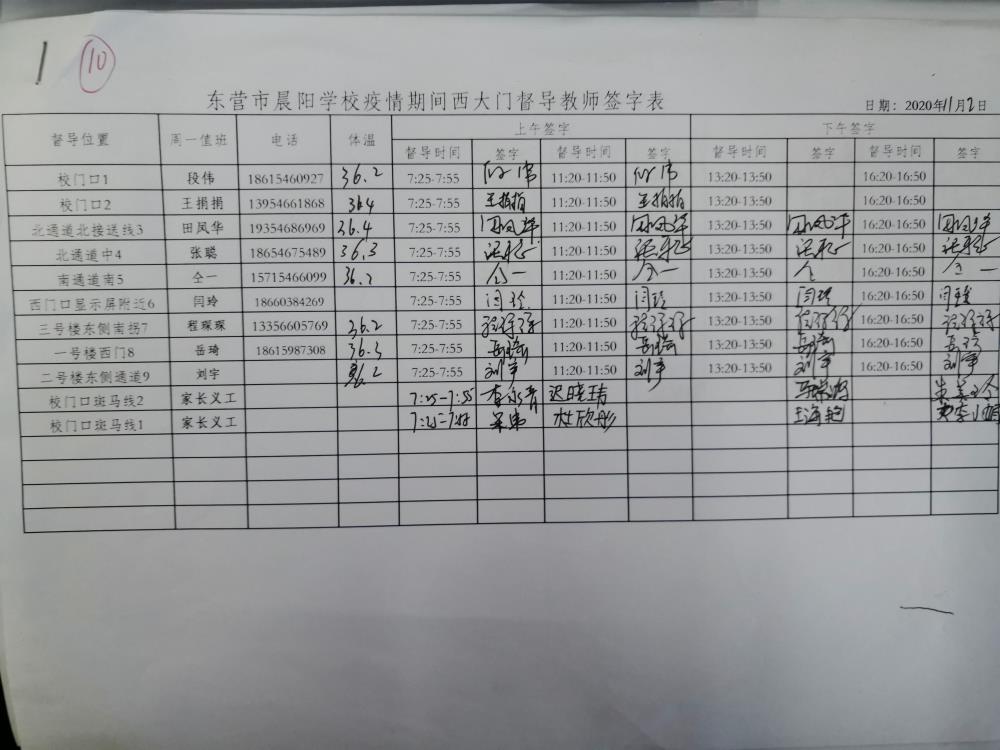 1 10
东营市晨阳学校疫情期间西大门督导教师签字表
日期：2020年11月2日
督导位置 周一值班 电话 体温 上午签字 下午签字
督导时间 签字 督导时间 签字 督导时间 签字 督导时间 签字
校门口1 段伟 18615460927 36.2 7:25-7:55 11:20-11:50 13:20-13:50 16:20-16:50
校门口2 王捐捐 13954661868 36.4 7:25-7:55 王捐捐 11:20-11:50 王捐捐 13:20-13:50 16:20-16:50
北通道北接送线3 田凤华 19354686969 36.4 7:25-7:55 田凤华 11:20-11:50 田凤华 13:20-13:50 田凤华 16:20-16:50 田凤华
北通道中4 张聪 18654675489 36.3 7:25-7:55 11:20-11:50 13:20-13:50 16:20-16:50
南通道南5 仝一 15715466099 36.2 7:25-7:55 仝一 11:20-11:50 仝一 13:20-13:50 仝 16:20-16:50 仝一
西门口显示屏附近6 闫玲 18660384269 7:25-7:55 闫玲 11:20-11:50 闫玲 13:20-13:50 闫玲 16:20-16:50 闫玲
三号楼东侧南拐7 程琛琛 13356605769 36.2 7:25-7:55 程琛琛 11:20-11:50 程琛琛 13:20-13:50 程琛琛 16:20-16:50 程琛琛
一号楼西门8 岳琦 18615987308 36.3 7:25-7:55 岳琦 11:20-11:50 岳琦 13:20-13:50 岳琦 16:20-16:50 岳琦
二号楼东侧通道9 刘宇 36.2 7:25-7:55 刘宇 11:20-11:50 刘宇 13:20-13:50 刘宇 16:20-16:50 刘宇
校门口斑马线2 家长义工 7:25-7:55 李永青 迟晓靖
校门口斑马线1 家长义工 7:25-7:55 杜欣彤 王海艳